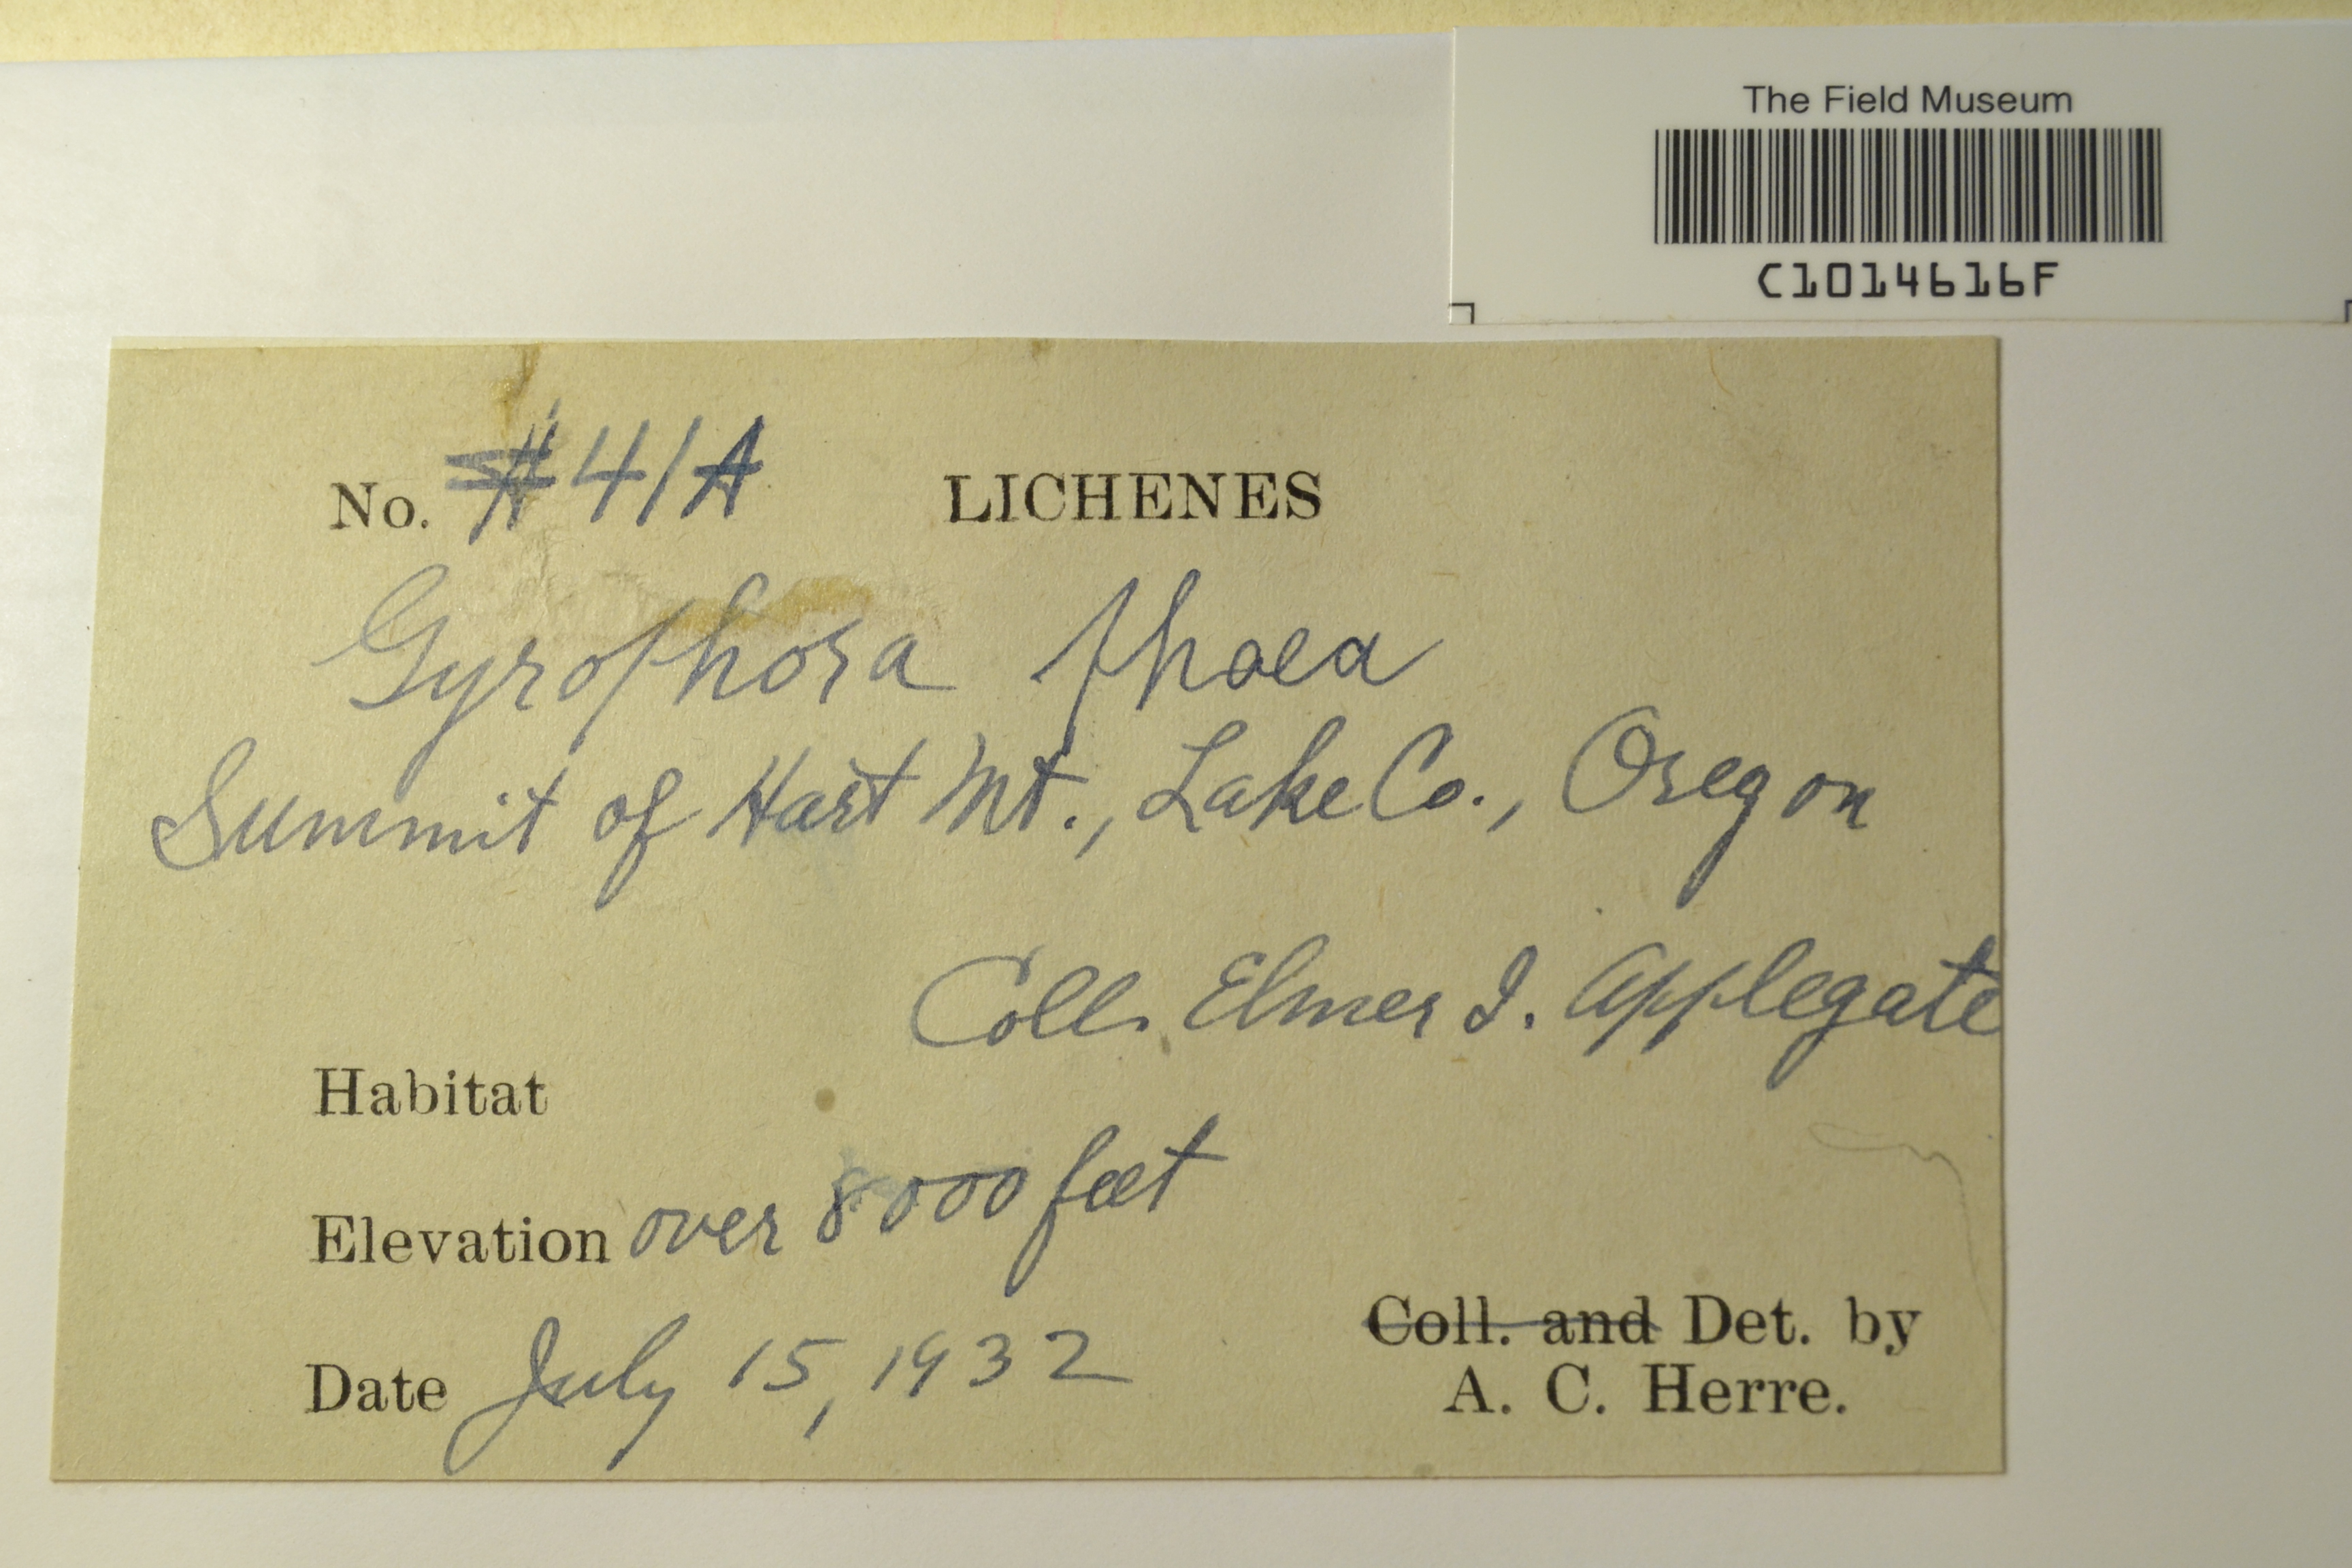 The Field Museum
C1014616F
No. #41A LICHENES
Gyrophora phaea
Summit of Hart Mt., Lake Co., Oregon
Coll. Elmer I. Applegate
Habitat
Elevation over 8000 feet
Date July 15, 1932
Coll. and Det. by
A. C. Herre.